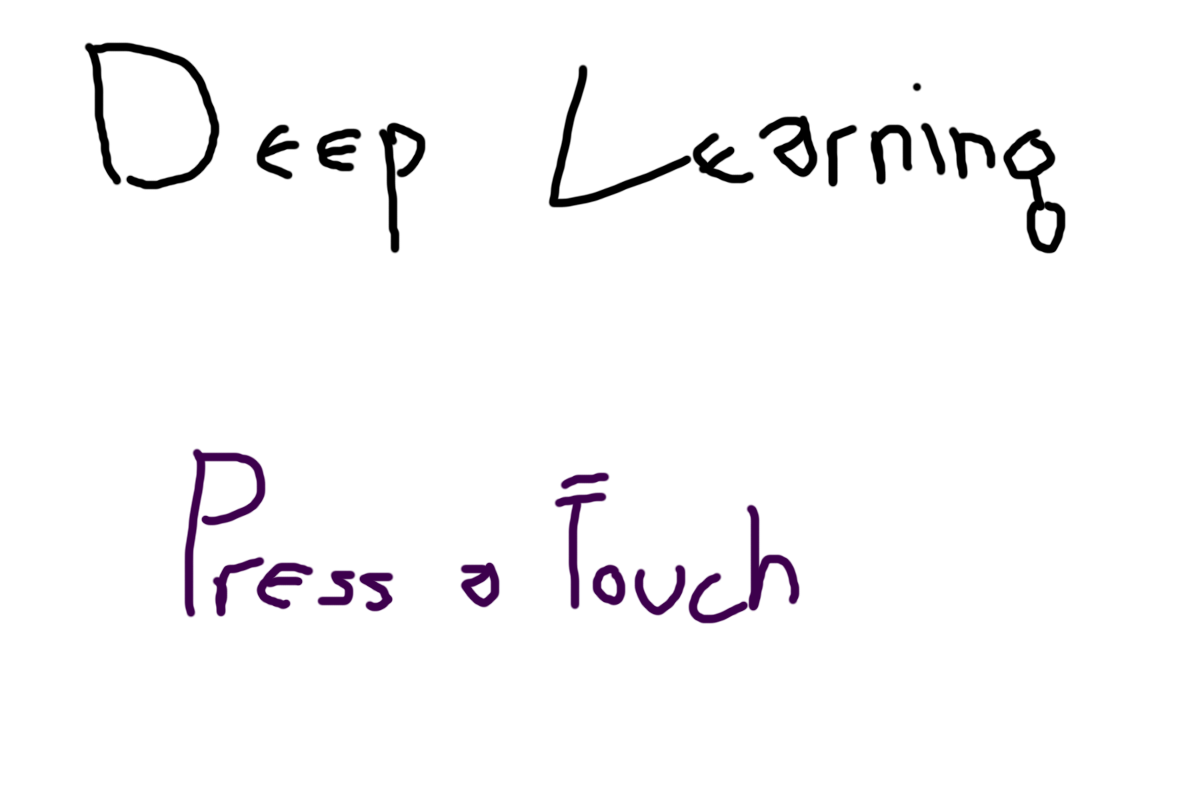 Deep Learning
Press a Touch